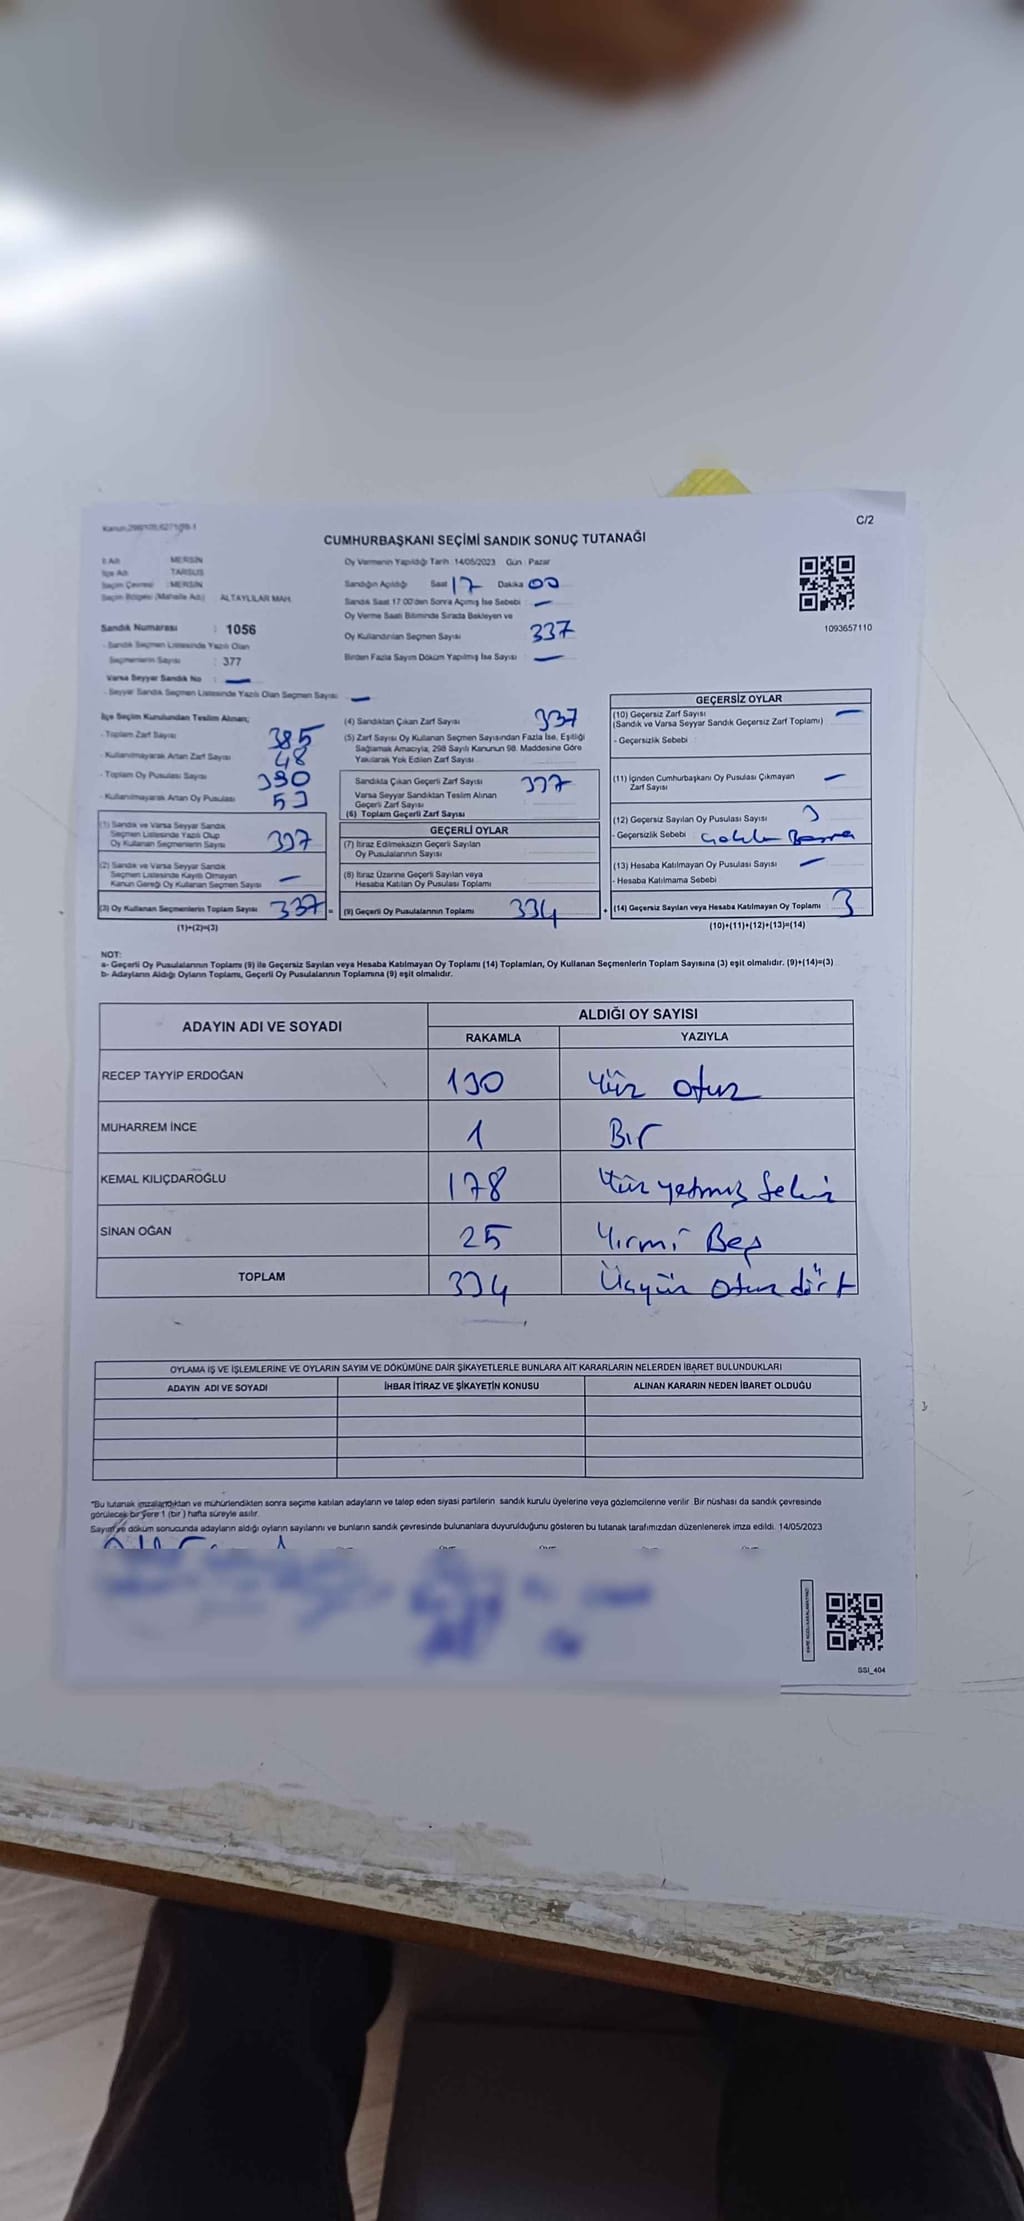 Kanun:298/105,6271/9-1
C/2
CUMHURBAŞKANI SEÇİMİ SANDIK SONUÇ TUTANAĞI
İl Adı : MERSİN
İlçe Adı : TARSUS
Seçim Çevresi : MERSİN
Seçim Bölgesi (Mahalle Adı) : ALTAYLILAR MAH.
Sandık Numarası : 1056
- Sandık Seçmen Listesinde Yazılı Olan
Seçmenlerin Sayısı : 377
Varsa Seyyar Sandık No : —
- Seyyar Sandık Seçmen Listesinde Yazılı Olan Seçmen Sayısı : —
Oy Vermenin Yapıldığı Tarih :14/05/2023 Gün : Pazar
Sandığın Açıldığı Saat 17 Dakika 00
Sandık Saat 17:00'den Sonra Açılmış İse Sebebi : —
Oy Verme Saati Bitiminde Sırada Bekleyen ve
Oy Kullandırılan Seçmen Sayısı 337
Birden Fazla Sayım Döküm Yapılmış İse Sayısı : —
1093657110
İlçe Seçim Kurulundan Teslim Alınan;
- Toplam Zarf Sayısı 385
- Kullanılmayarak Artan Zarf Sayısı 48
- Toplam Oy Pusulası Sayısı 390
- Kullanılmayarak Artan Oy Pusulası 53
(1) Sandık ve Varsa Seyyar Sandık
Seçmen Listesinde Yazılı Olup
Oy Kullanan Seçmenlerin Sayısı 337
(2) Sandık ve Varsa Seyyar Sandık
Seçmen Listesinde Kayıtlı Olmayan
Kanun Gereği Oy Kullanan Seçmen Sayısı —
(3) Oy Kullanan Seçmenlerin Toplam Sayısı 337 =
(1)+(2)=(3)
(4) Sandıktan Çıkan Zarf Sayısı 337
(5) Zarf Sayısı Oy Kullanan Seçmen Sayısından Fazla İse, Eşitliği
Sağlamak Amacıyla, 298 Sayılı Kanunun 98. Maddesine Göre
Yakılarak Yok Edilen Zarf Sayısı
Sandıkta Çıkan Geçerli Zarf Sayısı 337
Varsa Seyyar Sandıktan Teslim Alınan
Geçerli Zarf Sayısı
(6) Toplam Geçerli Zarf Sayısı
GEÇERLİ OYLAR
(7) İtiraz Edilmeksizin Geçerli Sayılan
Oy Pusulalarının Sayısı
(8) İtiraz Üzerine Geçerli Sayılan veya
Hesaba Katılan Oy Pusulası Toplamı
(9) Geçerli Oy Pusulalarının Toplamı 334 +
GEÇERSİZ OYLAR
(10) Geçersiz Zarf Sayısı —
(Sandık ve Varsa Seyyar Sandık Geçersiz Zarf Toplamı)
- Geçersizlik Sebebi
(11) İçinden Cumhurbaşkanı Oy Pusulası Çıkmayan —
Zarf Sayısı
(12) Geçersiz Sayılan Oy Pusulası Sayısı 3
- Geçersizlik Sebebi :
(13) Hesaba Katılmayan Oy Pusulası Sayısı —
- Hesaba Katılmama Sebebi
(14) Geçersiz Sayılan veya Hesaba Katılmayan Oy Toplamı 3
(10)+(11)+(12)+(13)=(14)
NOT:
a- Geçerli Oy Pusulalarının Toplamı (9) ile Geçersiz Sayılan veya Hesaba Katılmayan Oy Toplamı (14) Toplamları, Oy Kullanan Seçmenlerin Toplam Sayısına (3) eşit olmalıdır. (9)+(14)=(3)
b- Adayların Aldığı Oyların Toplamı, Geçerli Oy Pusulalarının Toplamına (9) eşit olmalıdır.
ADAYIN ADI VE SOYADI
ALDIĞI OY SAYISI
RAKAMLA YAZIYLA
RECEP TAYYİP ERDOĞAN 130 Yüz otuz
MUHARREM İNCE 1 Bir
KEMAL KILIÇDAROĞLU 178 Yüz yetmiş Sekiz
SİNAN OĞAN 25 Yirmi Beş
TOPLAM 334 Üçyüz otuz dört
OYLAMA İŞ VE İŞLEMLERİNE VE OYLARIN SAYIM VE DÖKÜMÜNE DAİR ŞİKAYETLERLE BUNLARA AİT KARARLARIN NELERDEN İBARET BULUNDUKLARI
ADAYIN ADI VE SOYADI İHBAR İTİRAZ VE ŞİKAYETİN KONUSU ALINAN KARARIN NEDEN İBARET OLDUĞU
"Bu tutanak imzalandıktan ve mühürlendikten sonra seçime katılan adayların ve talep eden siyasi partilerin sandık kurulu üyelerine veya gözlemcilerine verilir. Bir nüshası da sandık çevresinde
görülecek bir yere 1 (bir ) hafta süreyle asılır.
Sayım ve döküm sonucunda adayların aldığı oyların sayılarını ve bunların sandık çevresinde bulunanlara duyurulduğunu gösteren bu tutanak tarafımızdan düzenlenerek imza edildi. 14/05/2023
SSI_404